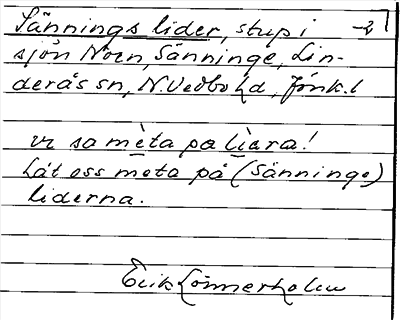 Sännings lider, stup i -2
sjön Noen, Sänninge, Lin-
derås sn, N. Vedbo hd, Jönk. l
vi sa mèta pa lìara!
Låt oss meta på (Sänninge)
liderna.
Erik Lönnerholm